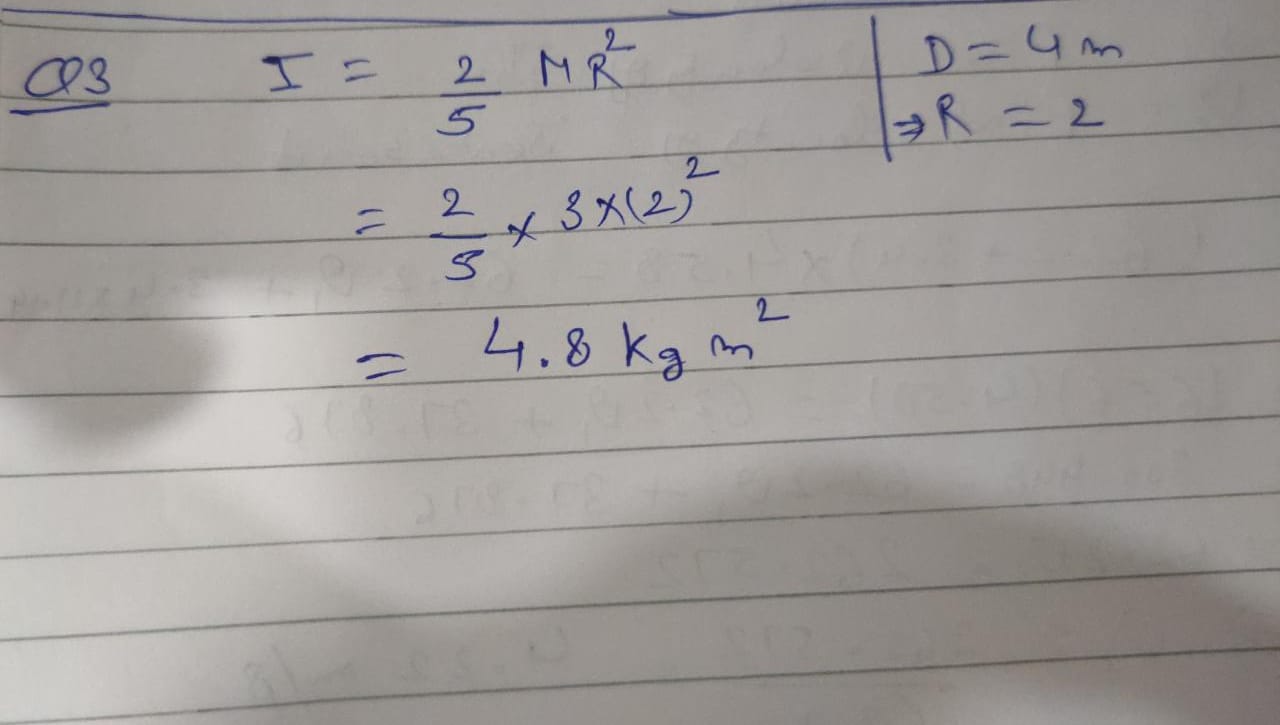 Q3 I = 2/5 MR² | D = 4 m
⇒ R = 2
= 2/5 × 3 × (2)²
= 4.8 kg m²